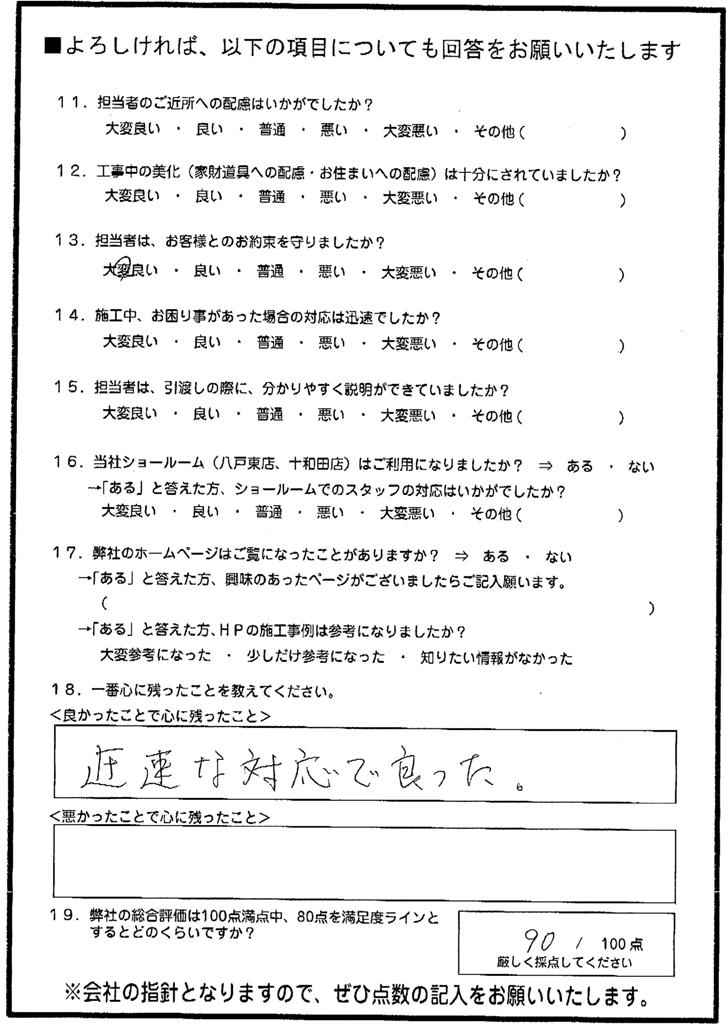 ■よろしければ、以下の項目についても回答をお願いいたします
11. 担当者のご近所への配慮はいかがでしたか？
大変良い ・ 良い ・ 普通 ・ 悪い ・ 大変悪い ・ その他（　　　　　）
12. 工事中の美化（家財道具への配慮・お住まいへの配慮）は十分にされていましたか？
大変良い ・ 良い ・ 普通 ・ 悪い ・ 大変悪い ・ その他（　　　　　）
13. 担当者は、お客様とのお約束を守りましたか？
大変良い ・ 良い ・ 普通 ・ 悪い ・ 大変悪い ・ その他（　　　　　）
14. 施工中、お困り事があった場合の対応は迅速でしたか？
大変良い ・ 良い ・ 普通 ・ 悪い ・ 大変悪い ・ その他（　　　　　）
15. 担当者は、引渡しの際に、分かりやすく説明ができていましたか？
大変良い ・ 良い ・ 普通 ・ 悪い ・ 大変悪い ・ その他（　　　　　）
16. 当社ショールーム（八戸東店、十和田店）はご利用になりましたか？ ⇒ ある ・ ない
→「ある」と答えた方、ショールームでのスタッフの対応はいかがでしたか？
大変良い ・ 良い ・ 普通 ・ 悪い ・ 大変悪い ・ その他（　　　　　）
17. 弊社のホームページはご覧になったことがありますか？ ⇒ ある ・ ない
→「ある」と答えた方、興味のあったページがございましたらご記入願います。
（　　　　　）
→「ある」と答えた方、HPの施工事例は参考になりましたか？
大変参考になった ・ 少しだけ参考になった ・ 知りたい情報がなかった
18. 一番心に残ったことを教えてください。
＜良かったことで心に残ったこと＞
迅速な対応で良った。
＜悪かったことで心に残ったこと＞
19. 弊社の総合評価は100点満点中、80点を満足度ラインと
するとどのくらいですか？
90 / 100点
厳しく採点してください
※会社の指針となりますので、ぜひ点数の記入をお願いいたします。